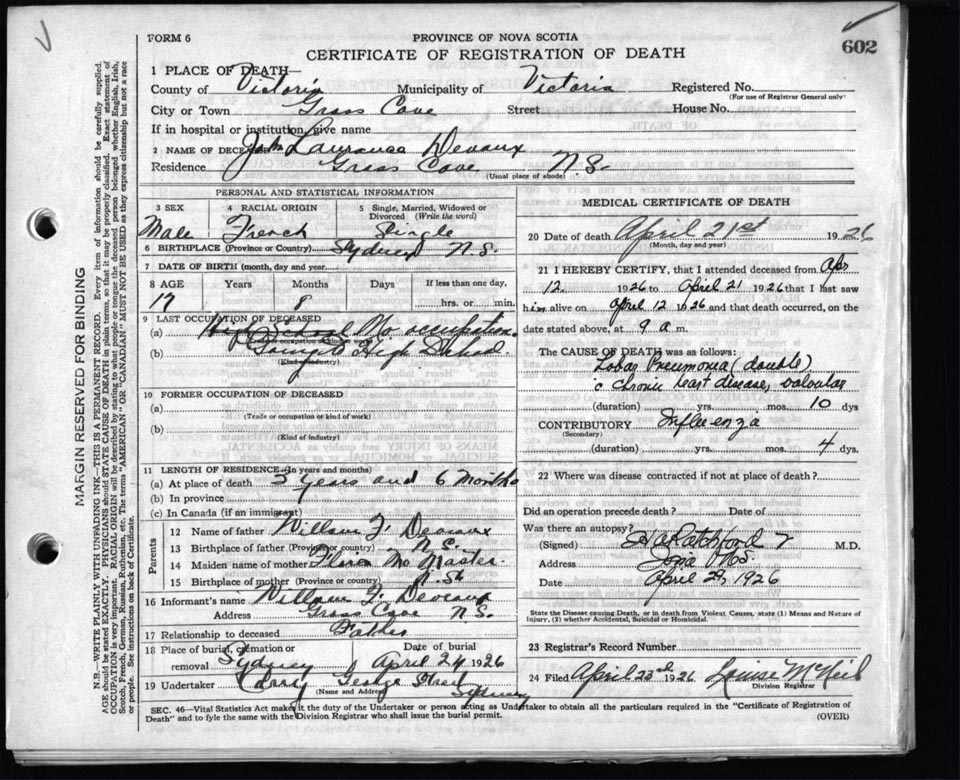 FORM 6
PROVINCE OF NOVA SCOTIA
CERTIFICATE OF REGISTRATION OF DEATH
602
1 PLACE OF DEATH—
County of Victoria Municipality of Victoria Registered No.
(For use of Registrar General only)
City or Town Grass Cove Street House No.
If in hospital or institution, give name
2 NAME OF DECEASED John Laurance Devaux
Residence Grass Cove N.S.
(Usual place of abode)
PERSONAL AND STATISTICAL INFORMATION
3 SEX 4 RACIAL ORIGIN 5 Single, Married, Widowed or Divorced (Write the word)
Male French Single
6 BIRTHPLACE (Province or Country) Sydney N.S.
7 DATE OF BIRTH (month, day and year)
8 AGE Years Months Days If less than one day,
17 8 hrs. or min.
9 LAST OCCUPATION OF DECEASED
(a) High School No occupation
(Trade or occupation or kind of work)
(b) Going to High School.
(Kind of industry)
10 FORMER OCCUPATION OF DECEASED
(a)
(Trade or occupation or kind of work)
(b)
(Kind of industry)
11 LENGTH OF RESIDENCE (In years and months)
(a) At place of death 3 years and 6 months
(b) In province
(c) In Canada (if an immigrant)
Parents
12 Name of father William J. Devaux
13 Birthplace of father (Province or country) N.S.
14 Maiden name of mother Mc Master
15 Birthplace of mother (Province or country) N.S.
16 Informant's name William J. Devaux
Address Grass Cove N.S.
17 Relationship to deceased Father
18 Place of burial, cremation or removal Sydney Date of burial April 24 1926
19 Undertaker George Street Sydney
(Name and Address)
MEDICAL CERTIFICATE OF DEATH
20 Date of death April 21st 1926
(Month, day and year)
21 I HEREBY CERTIFY, that I attended deceased from Apr
12. 1926 to April 21 1926 that I last saw
him alive on April 12 1926 and that death occurred, on the
date stated above, at 9 a.m.
The CAUSE OF DEATH was as follows:
Lobar Pneumonia (double)
c Chronic heart disease, valvular
(duration) yrs. mos. 10 dys
CONTRIBUTORY Influenza
(Secondary)
(duration) yrs. mos. 4 dys.
22 Where was disease contracted if not at place of death?
Did an operation precede death? Date of
Was there an autopsy?
(Signed) Ratchford M.D.
Address
Date April 29, 1926
State the Disease causing Death, or in death from Violent Causes, state (1) Means and Nature of Injury, (2) whether Accidental, Suicidal or Homicidal.
23 Registrar's Record Number
24 Filed April 23rd 1926 Louise McNeil
Division Registrar
SEC. 46—Vital Statistics Act makes it the duty of the Undertaker or person acting as Undertaker to obtain all the particulars required in the "Certificate of Registration of
Death" and to fyle the same with the Division Registrar who shall issue the burial permit.
(OVER)
MARGIN RESERVED FOR BINDING
N.B.—WRITE PLAINLY WITH UNFADING INK—THIS IS A PERMANENT RECORD. Every item of information should be carefully supplied.
AGE should be stated EXACTLY. PHYSICIANS should STATE CAUSE OF DEATH in plain terms, so that it may be properly classified. Exact statement of
OCCUPATION is very important. RACIAL ORIGIN will be described by stating to what people or tongue the deceased person belonged whether English, Irish,
Scotch, French, German, Russian, Ruthenian, etc. The terms "AMERICAN" OR "CANADIAN" MUST NOT BE USED as they express citizenship but not a race
or people. See instructions on back of Certificate.